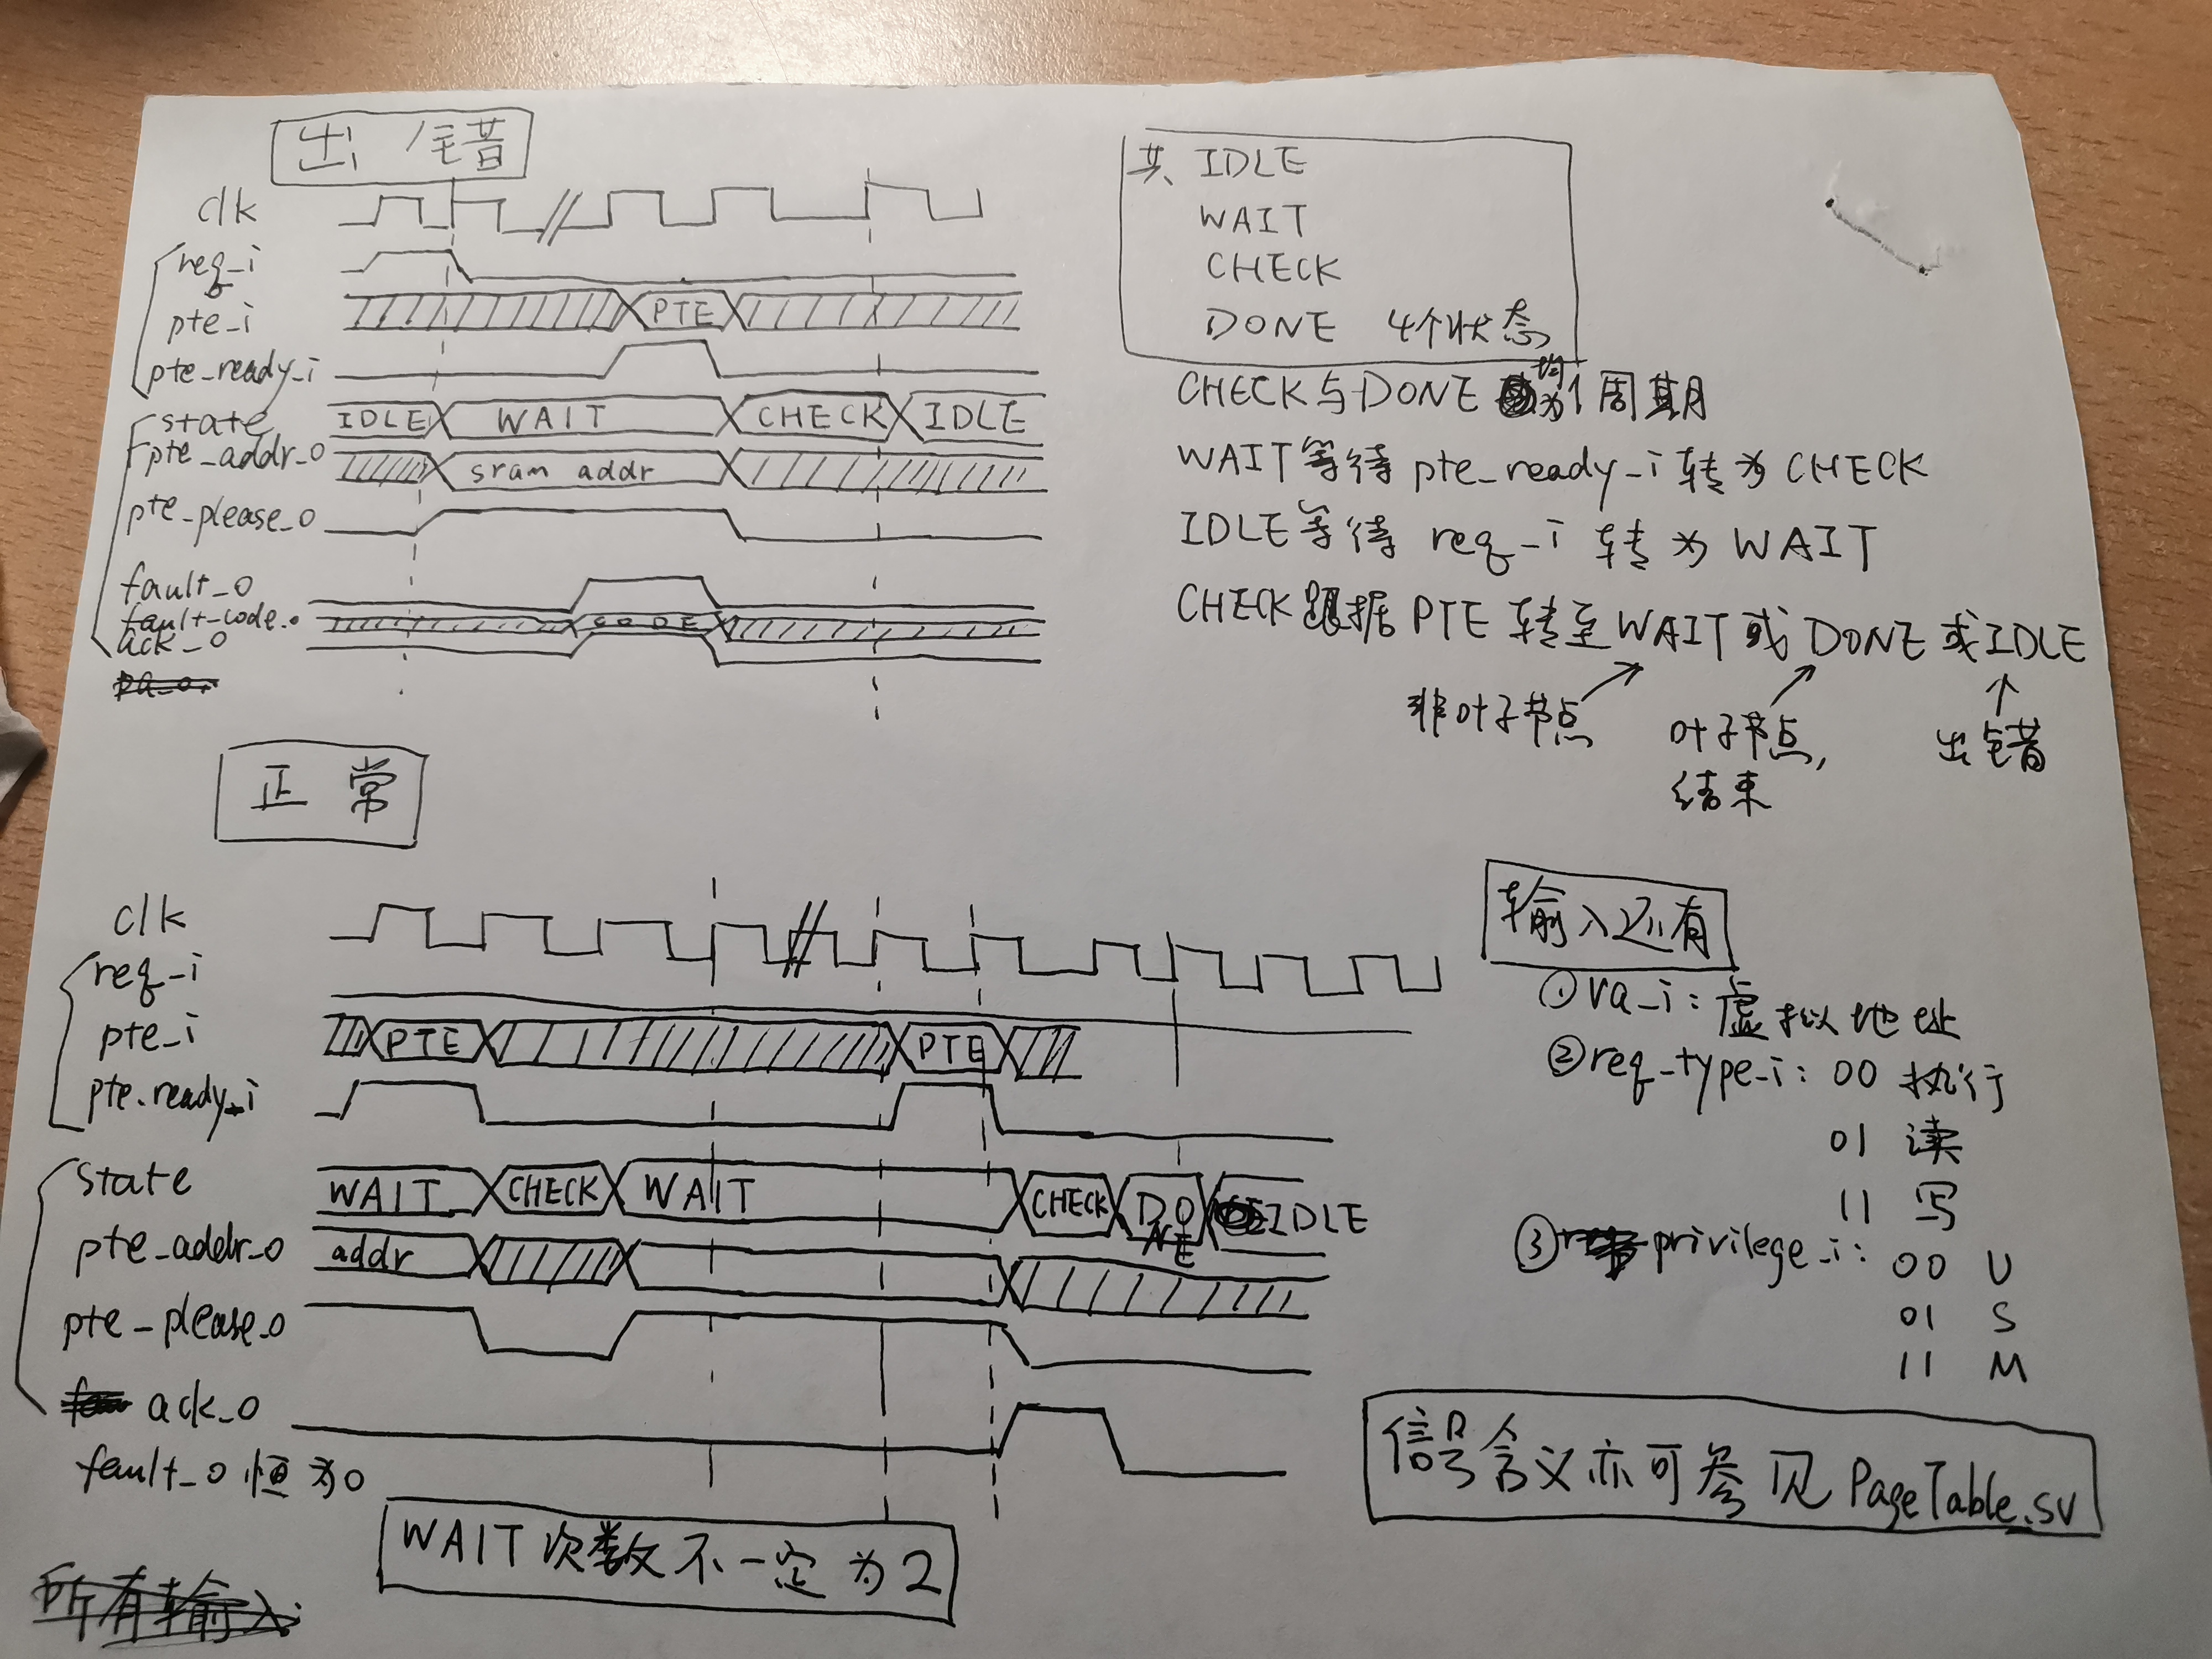 出错
clk
req_i
pte_i PTE
pte_ready_i
state IDLE WAIT CHECK IDLE
pte_addr_o sram addr
pte_please_o
fault_o
fault_code_o CODE
ack_o
共 IDLE
WAIT
CHECK
DONE 4个状态
CHECK与DONE均为1周期
WAIT等待 pte_ready_i 转为 CHECK
IDLE等待 req_i 转为 WAIT
CHECK 跟据 PTE 转至 WAIT 或 DONE 或 IDLE
非叶子节点
叶子节点,
结束
出错
正常
clk
req_i
pte_i PTE PTE
pte_ready_i
state WAIT CHECK WAIT CHECK DONE IDLE
pte_addr_o addr
pte_please_o
ack_o
fault_o 恒为0
WAIT 次数不一定为2
所有输入
输入还有
①va_i: 虚拟地址
②req_type_i: 00 执行
01 读
11 写
③privilege_i: 00 U
01 S
11 M
信号含义亦可参见 PageTable.sv